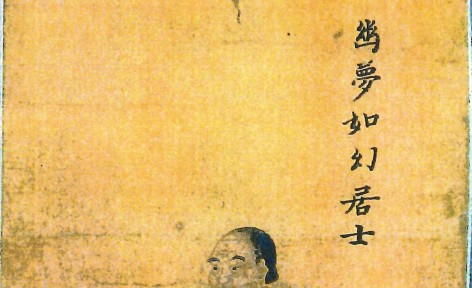 幽夢如幻居士